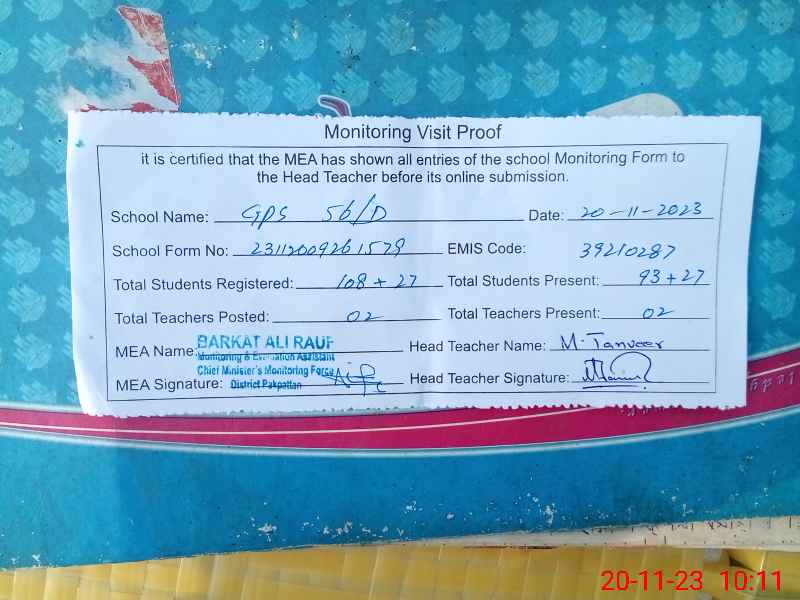 Monitoring Visit Proof
it is certified that the MEA has shown all entries of the school Monitoring Form to
the Head Teacher before its online submission.
School Name: GPS 56/D Date: 20-11-2023
School Form No: 23112009261579 EMIS Code: 39210287
Total Students Registered: 108 + 27 Total Students Present: 93 + 27
Total Teachers Posted: 02 Total Teachers Present: 02
MEA Name: BARKAT ALI RAUF Head Teacher Name: M. Tanveer
Monitoring & Evaluation Assistant
Chief Minister's Monitoring Force
MEA Signature: District Pakpattan Head Teacher Signature:
20-11-23 10:11